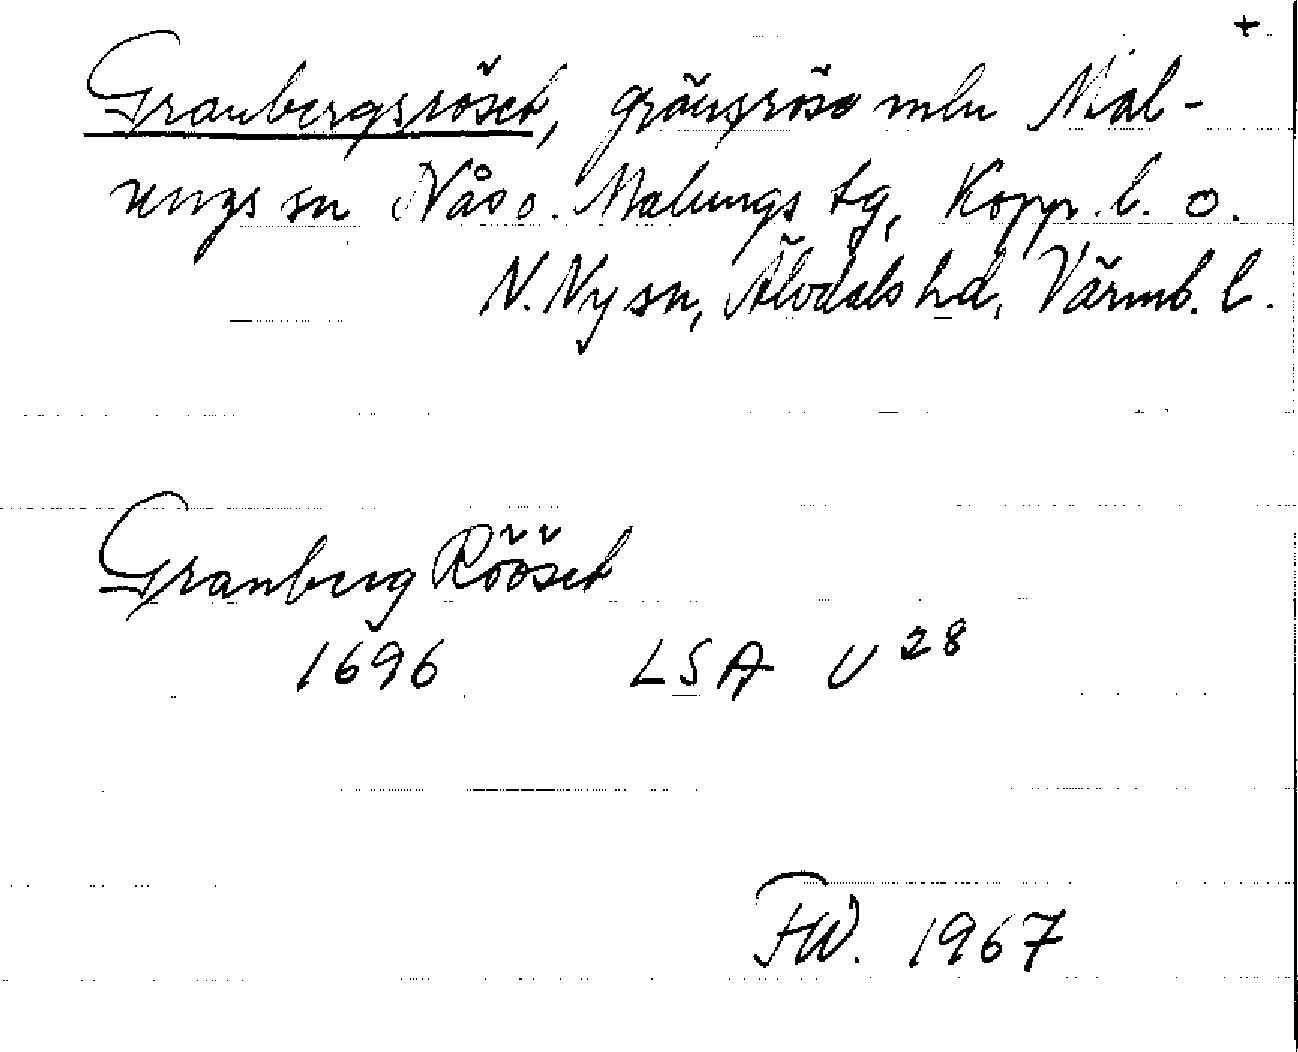 +
Granbergsröset, gränsröse mln Mal-
ungs sn Nås o. Malungs tg, Kopp. l. o.
N. Ny sn, Älvdals hd, Värml. l.
Granberg Rööset
1696 LSA U 28
FW. 1967